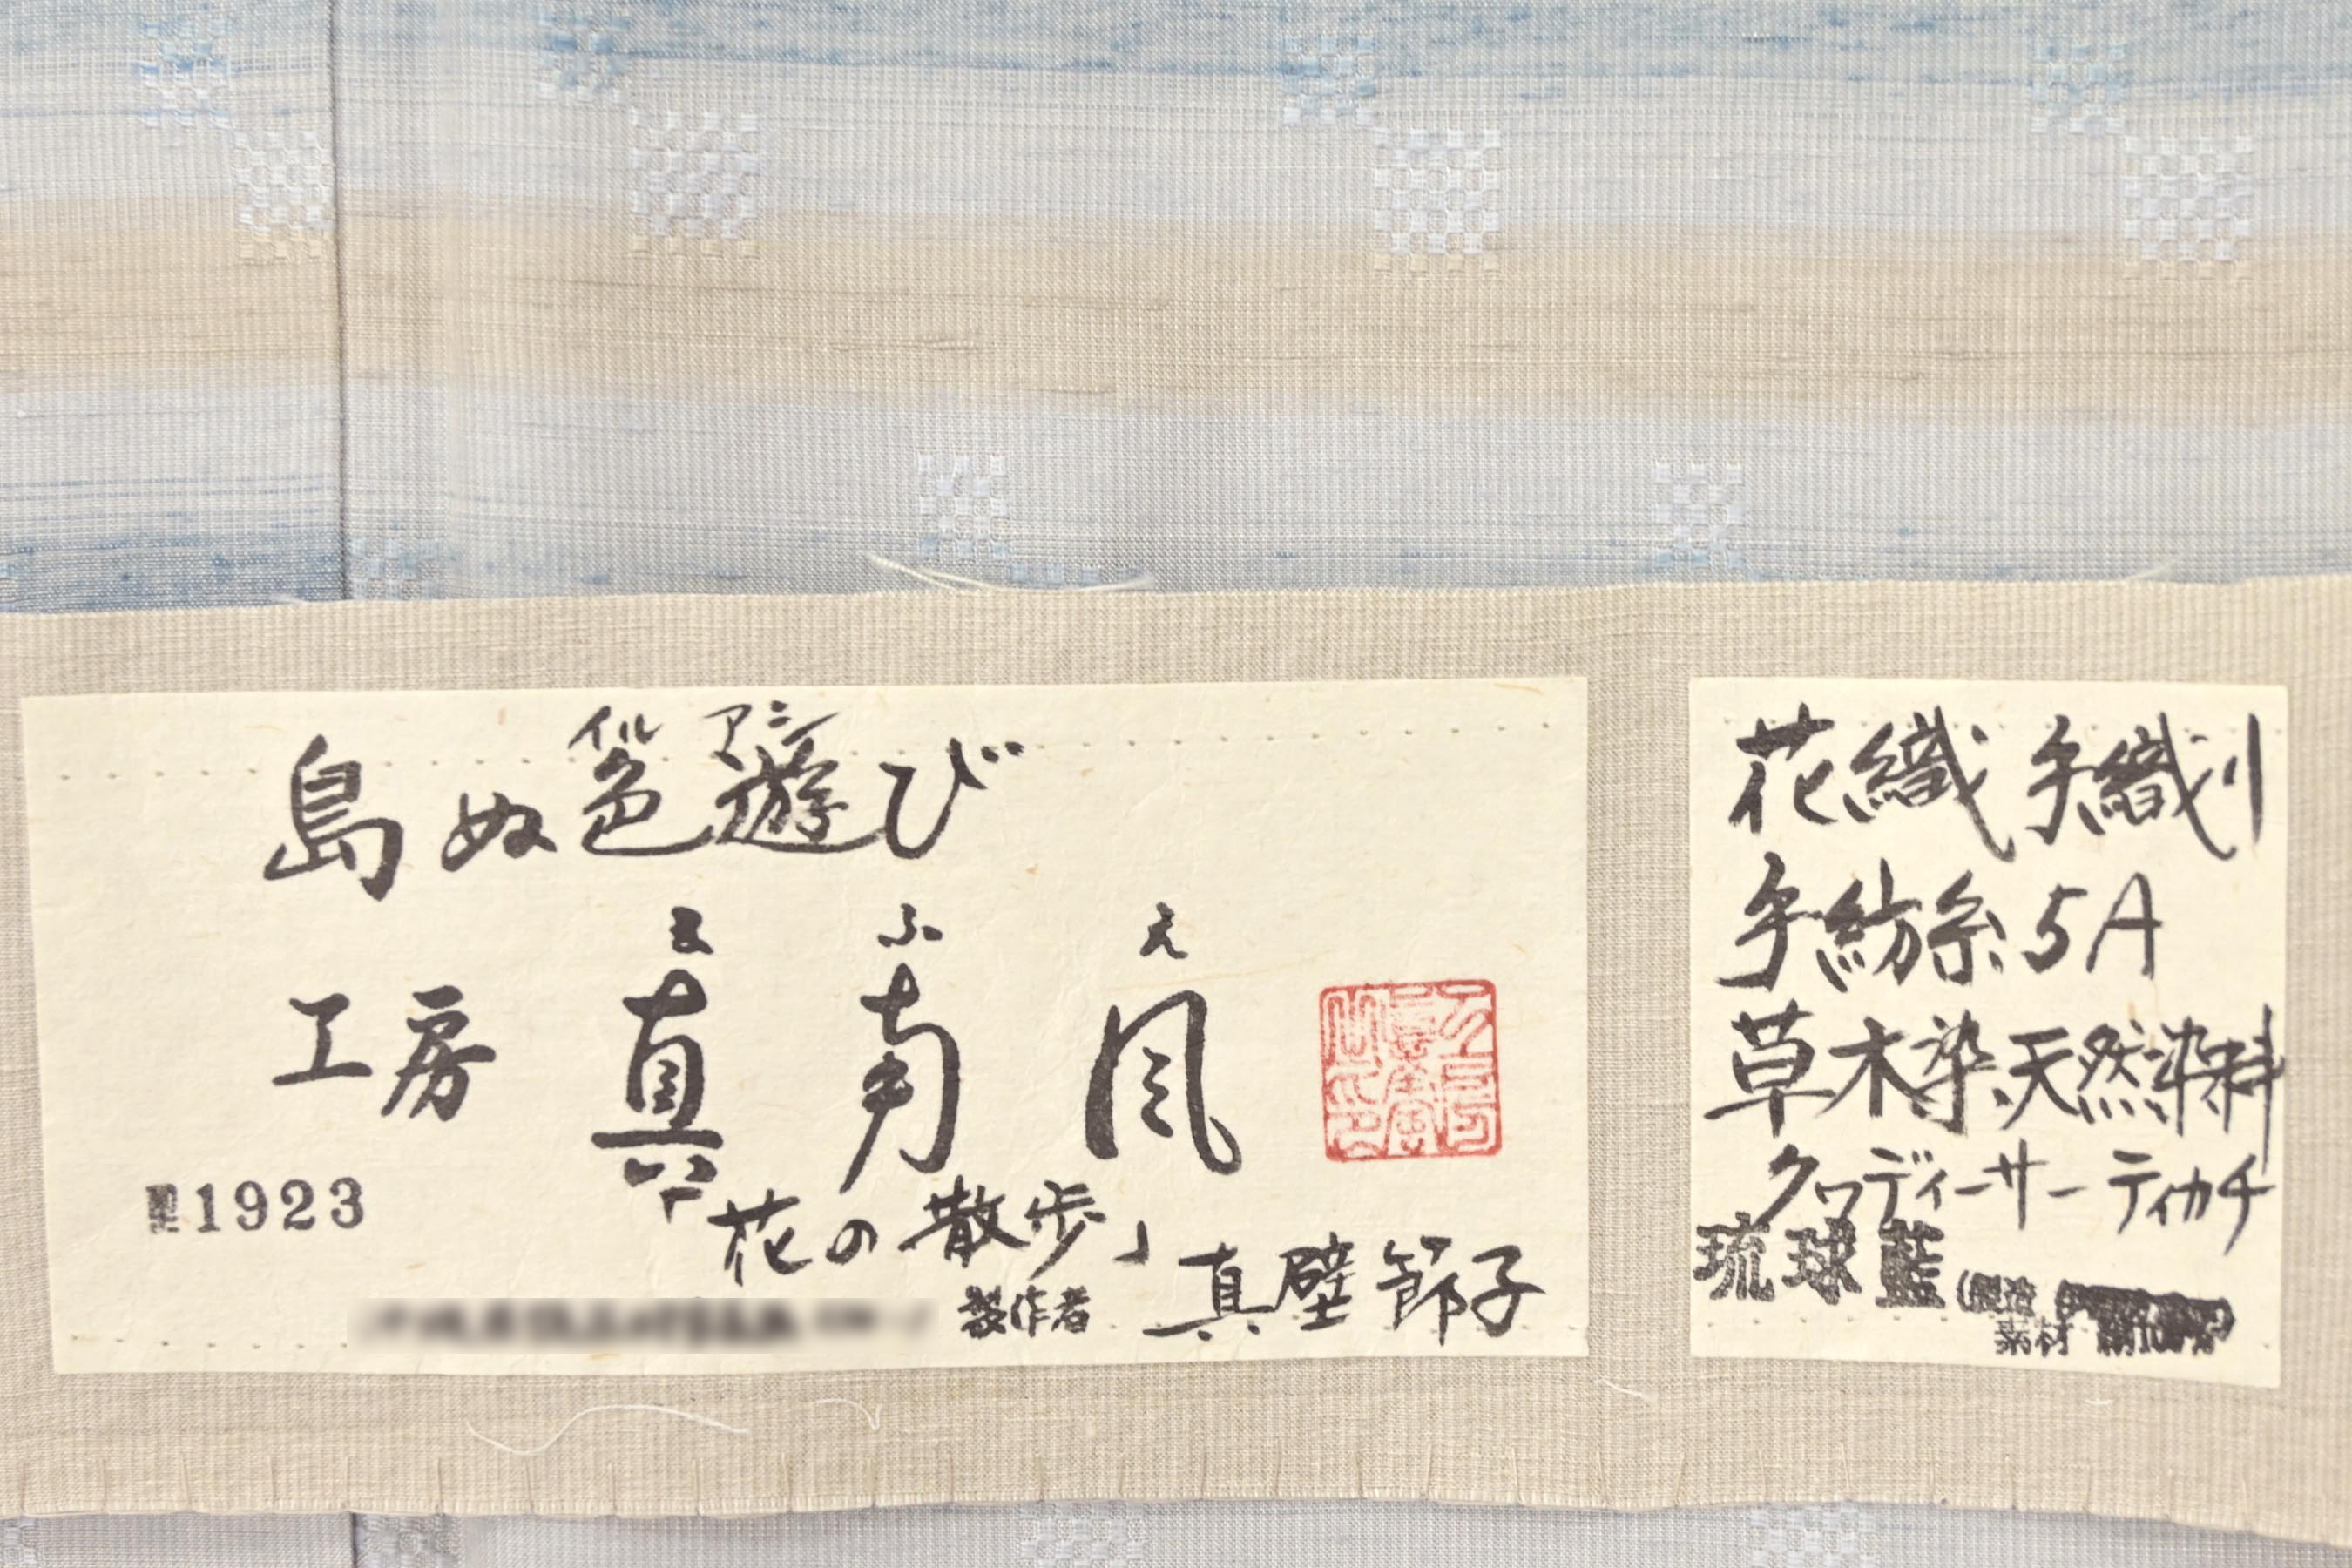 島ぬ色遊び
イル アシ
工房 真南風
ま ふ え
1923
「花の散歩」
製作者 真壁節子
花織 手織り
手紡糸 5A
草木染 天然染料
クヮディーサー ティカチ
琉球藍
素材